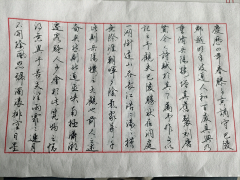 慶歷四年春滕子京謫守巴陵
郡越明年政通人和百廢具興乃
重修岳陽樓增其舊製刻唐
賢今人詩賦於其上屬予作文以
記之予觀夫巴陵勝狀在洞庭
一湖銜遠山吞長江浩浩湯湯
橫無際涯朝暉夕陰氣象萬千
此則岳陽樓之大觀也前人之述
備矣然則北通巫峽南極瀟湘
遷客騷人多會於此覽物之情
得無異乎若夫霪雨霏霏連月
不開陰風怒號濁浪排空日星